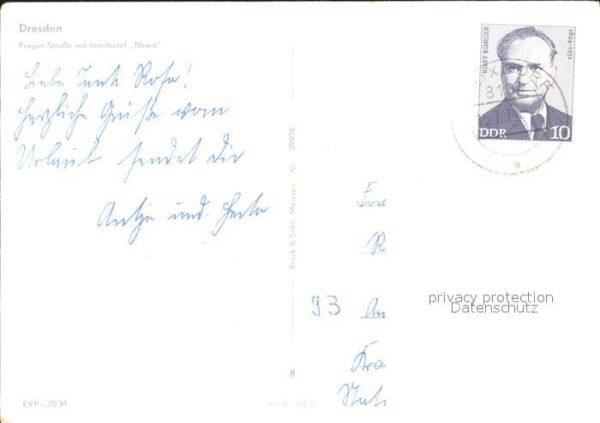 Dresden
Prager Straße mit Interhotel „Newa"
Liebe Tante Rosa!
Herzliche Grüße vom
Urlaub sendet dir
Antje und Herta
Brück & Sohn, Meissen, Nr. 29970
KURT BÜRGER
1894-1951
DDR 10
a
R
93 An
Kra
privacy protection
Datenschutz
EVP -,20 M